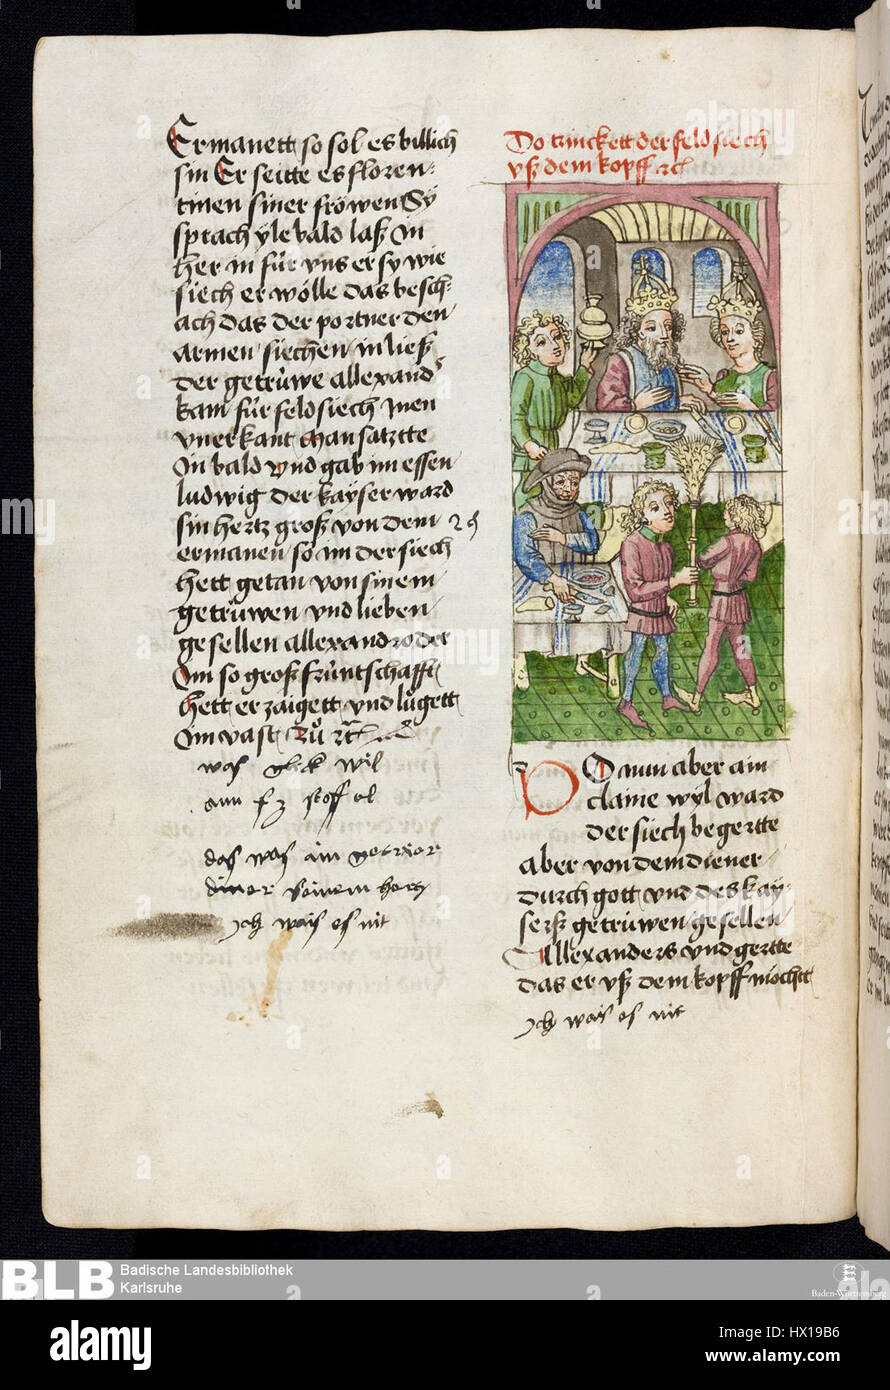 Ermanett so sol es billich
sin Er seitte es floren-
tinen siner fröwen Sy
sprach yle bald laß in
her in für vns er sy wie
siech er wölle das besch-
ach das der portner den
armen siechen in ließ
der getrüwe allexand
kam für feldsiech men
vnerkant Man satztte
In bald vnd gab im essen
ludwig der kayser ward
sin hertz groß von dem
ermanen so im der siech
hett getan von sinem
getrüwen vnd lieben
gesellen allexandro der
Im so groß früntschafft
hett er zaigett vnd lůgett
Im vast zů
was glck wil
das was ain
ich wais es nit
Do trinckett der feldsiech
vß dem kopff
DO nun aber ain
claine wyl ward
der siech begertte
aber von dem diener
durch gott vnd des kay-
serß getrüwen gesellen
Allexanders vnd gertte
das er vß dem kopff möchtt
ich wais es nit
BLB Badische Landesbibliothek
Karlsruhe
Baden-Württemberg
alamy
HX19B6
www.alamy.com